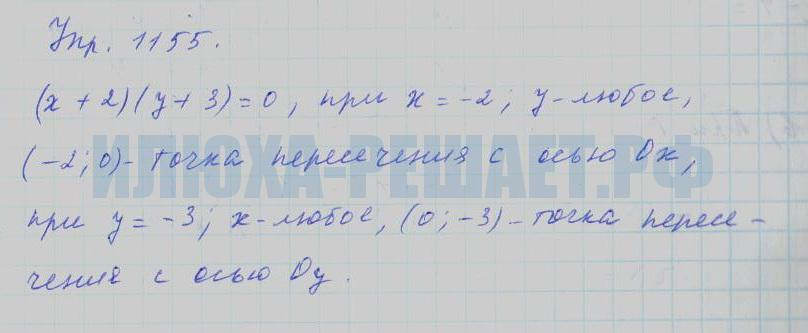 Упр. 1155.
(x + 2)(y + 3) = 0, при x = -2; y - любое,
(-2; 0) - точка пересечения с осью Ox,
ИЛЮХА-РЕШАЕТ.РФ
при y = -3; x - любое, (0; -3) - точка пересе -
чения с осью Oy.